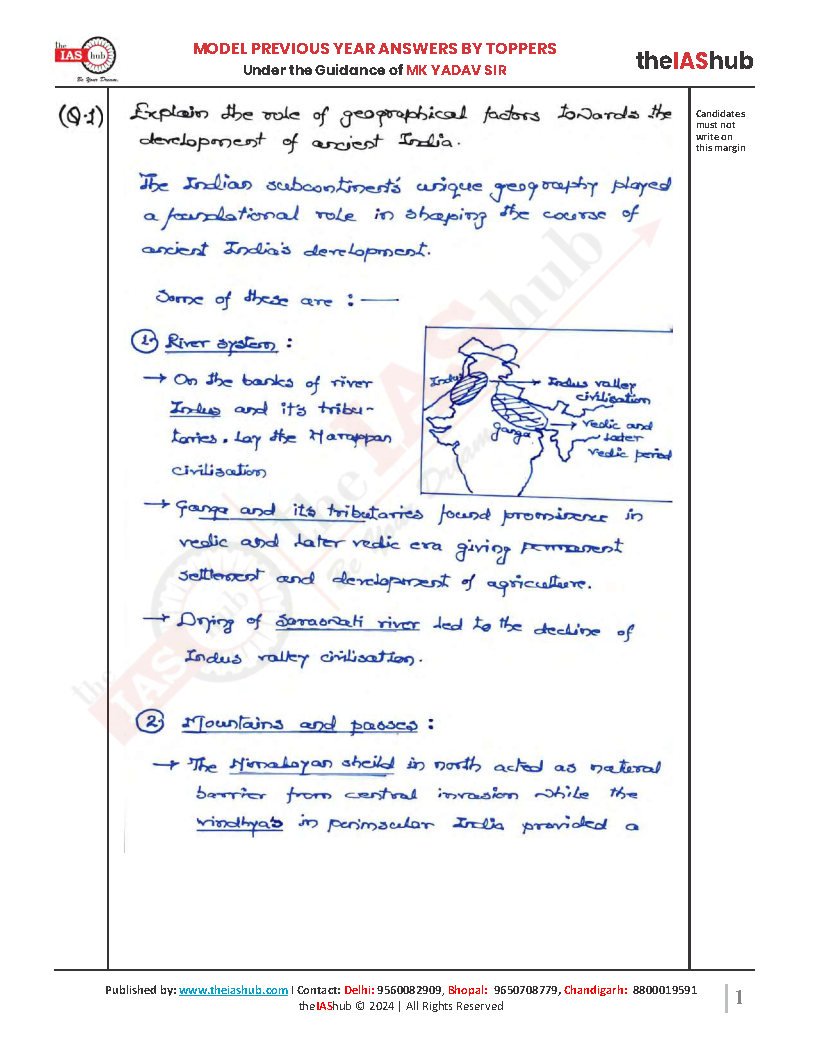 the IAS hub
Be Your Dream.
MODEL PREVIOUS YEAR ANSWERS BY TOPPERS
Under the Guidance of MK YADAV SIR
theIAShub
Candidates
must not
write on
this margin
(Q.1) Explain the role of geographical factors towards the
development of ancient India.
The Indian subcontinent's unique geography played
a foundational role in shaping the course of
ancient India's development.
Some of these are : —
1. River system :
→ On the banks of river
Indus and it's tribu-
taries. Lay the Harappan
civilisation
Indus
Indus valley
civilisation
Ganga
Vedic and
later
vedic period
→ Ganga and its tributaries found prominence in
vedic and later vedic era giving permanent
settlement and development of agriculture.
→ Drying of Saraswati river led to the decline of
Indus valley civilisation.
2. Mountains and passes :
→ The Himalayan sheild in north acted as natural
barrier from central invasion while the
vindhya's in peninsular India provided a
the IAS hub
Be Your Dream
Published by: www.theiashub.com I Contact: Delhi: 9560082909, Bhopal: 9650708779, Chandigarh: 8800019591
theIAShub © 2024 | All Rights Reserved
1